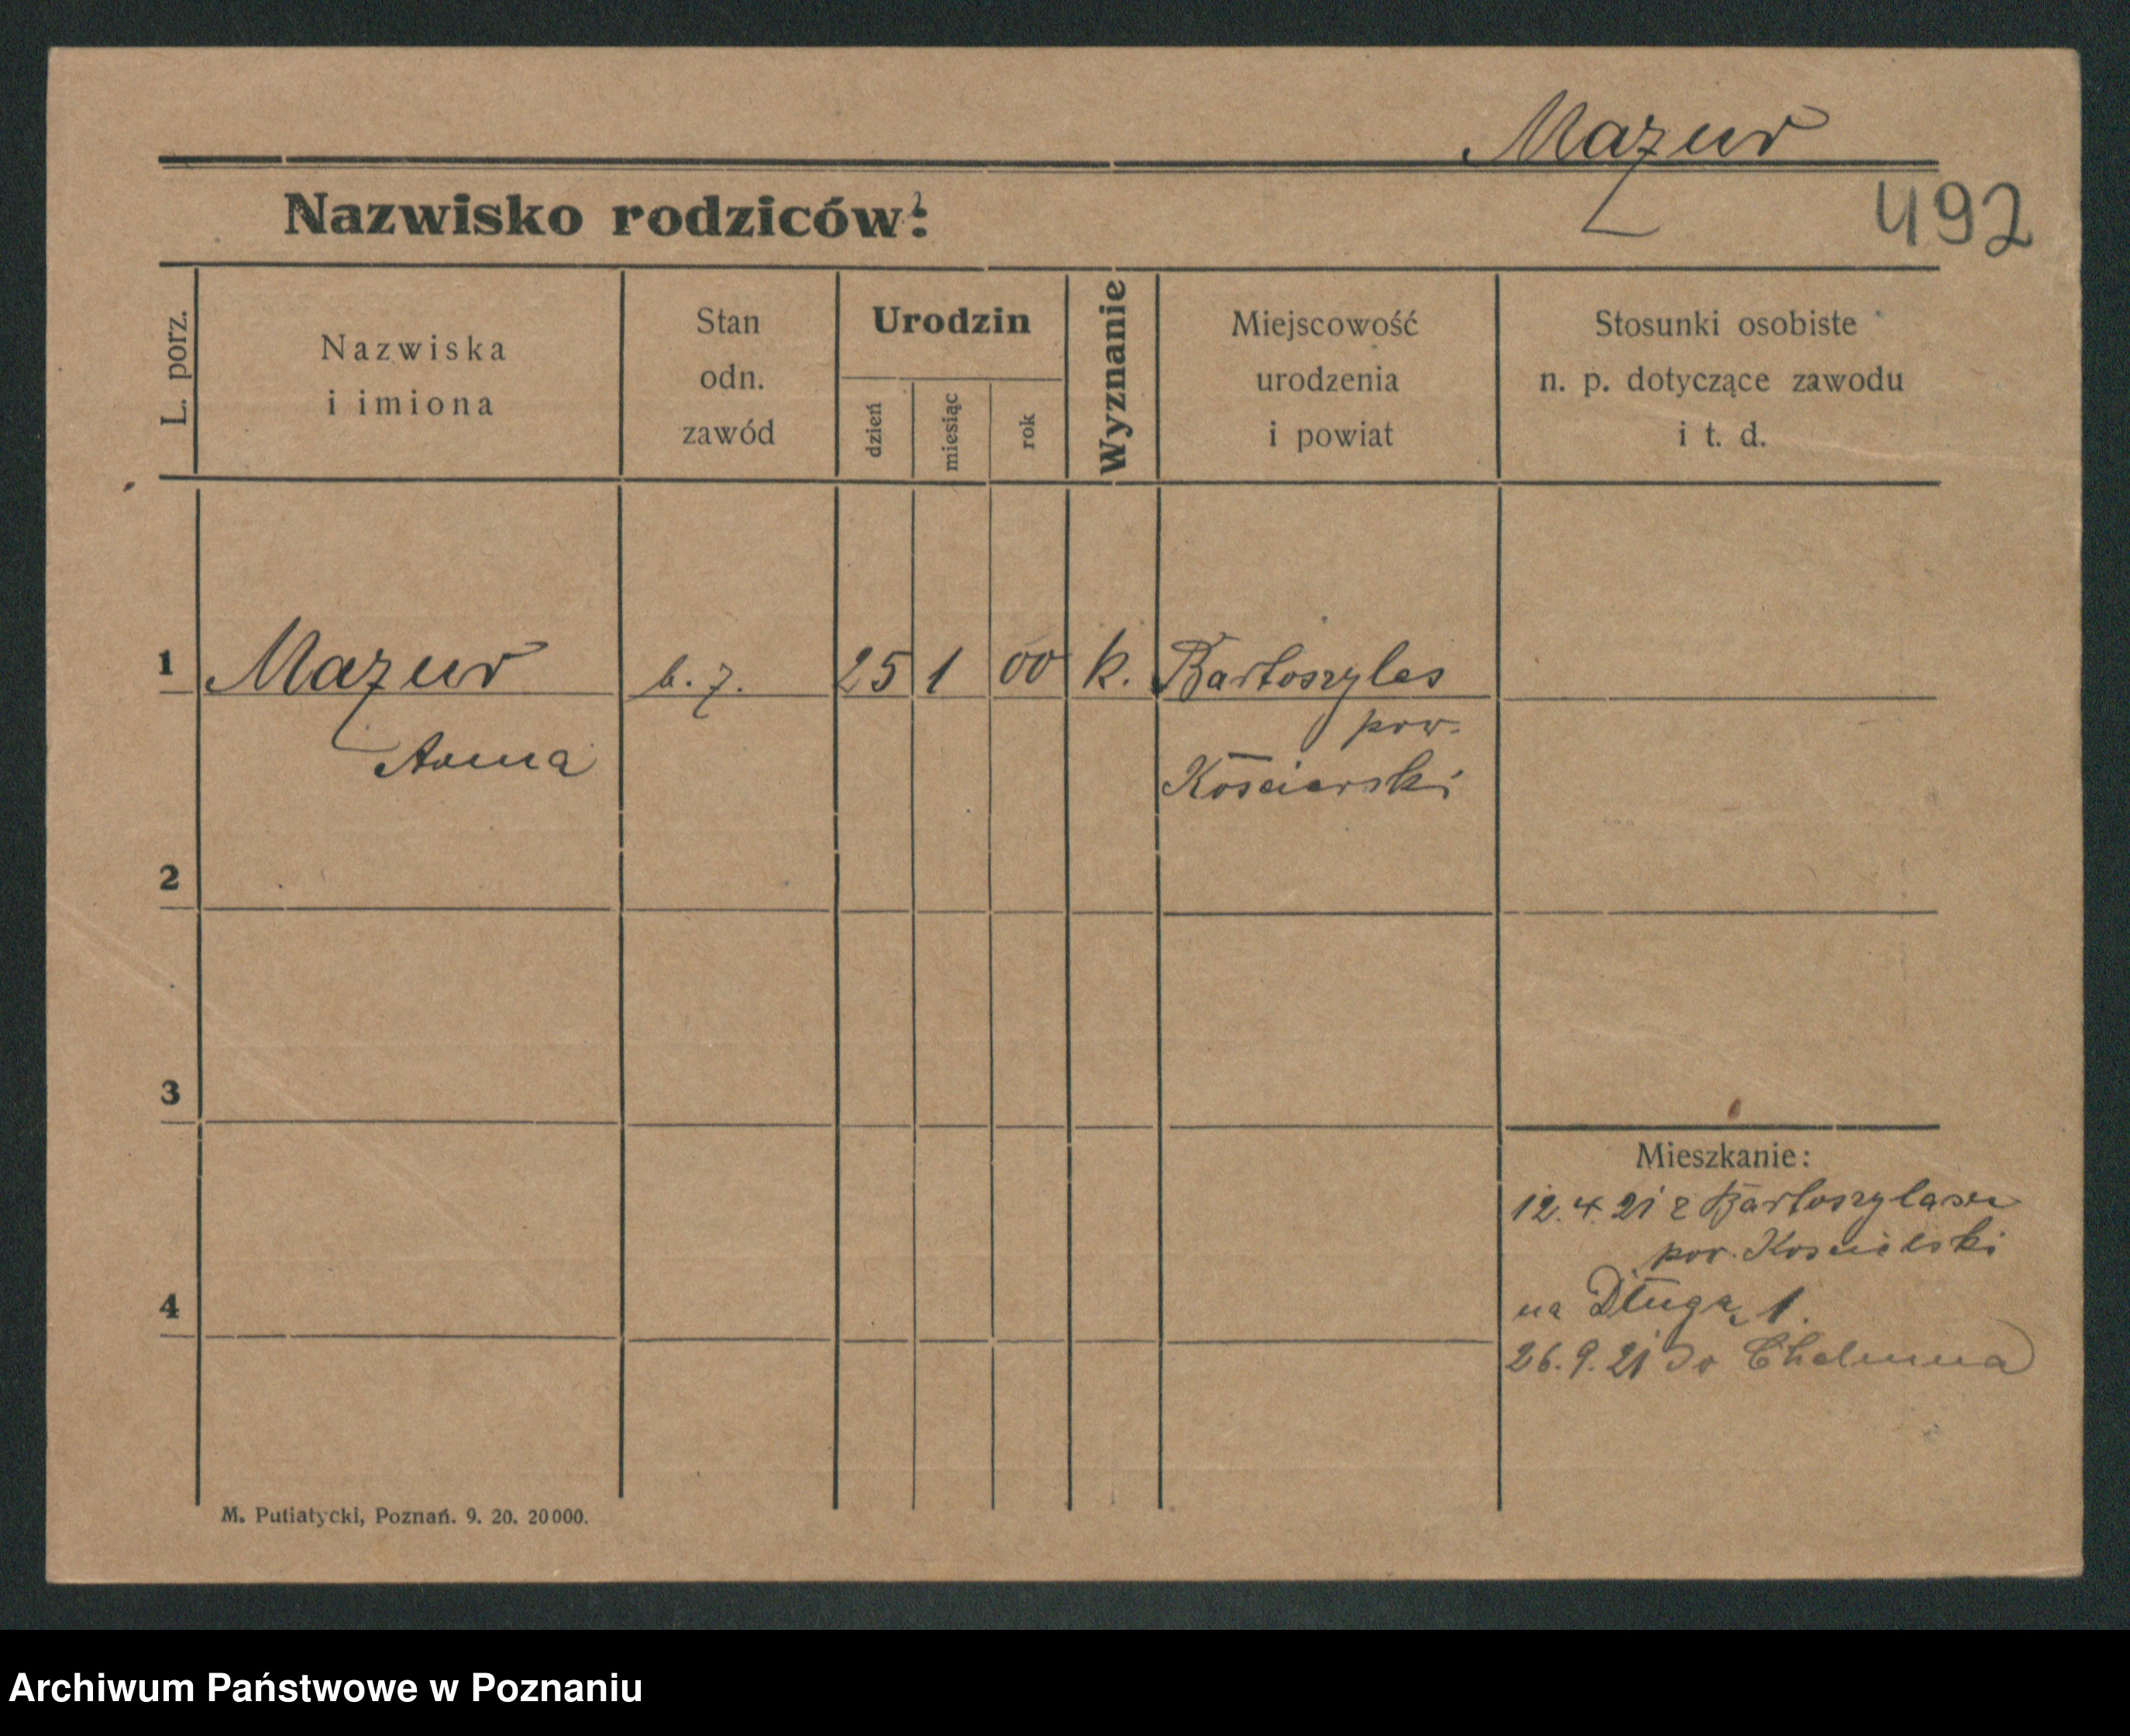 Mazur
492
Nazwisko rodziców:
L. porz.
Nazwiska
i imiona
Stan
odn.
zawód
Urodzin
dzień
miesiąc
rok
Wyznanie
Miejscowość
urodzenia
i powiat
Stosunki osobiste
n. p. dotyczące zawodu
i t. d.
1 Mazur b. z. 25 1 00 k. Bartoszylas
pow.
Anna
Kościerski
2
3
Mieszkanie:
12.4.21 z Bartoszylasu
pow. Kościerski
na Długą 1.
4
26.9.21 do Chełmna
M. Putiatycki, Poznań. 9. 20. 20000.
Archiwum Państwowe w Poznaniu